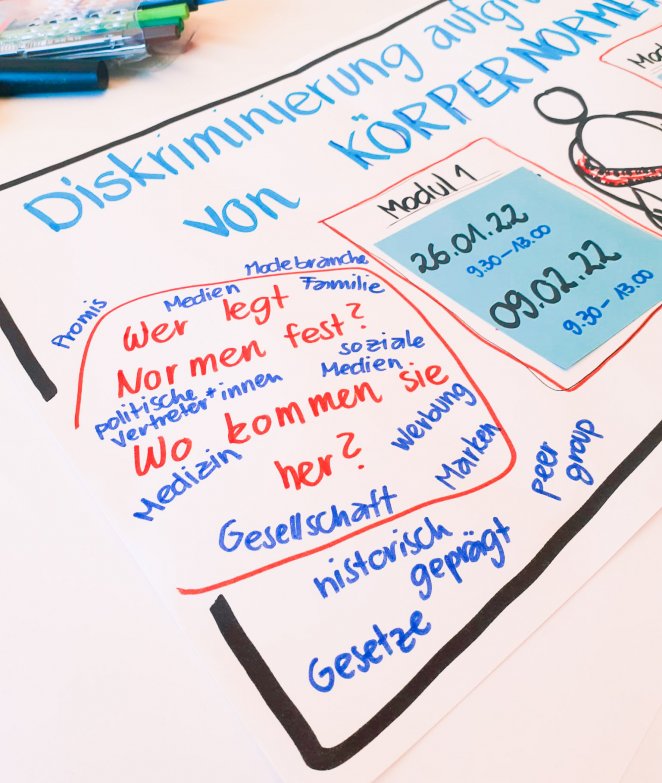 Diskriminierung aufgru
von KÖRPERNORMEN
Mod
Modul 1
26.01.22
9.30-13.00
09.02.22
9.30-13.00
Modebranche
Promis
Medien Familie
Wer legt
Normen fest?
soziale
Medien
politische
Vertreter*innen
Wo kommen sie
her?
Medizin
Werbung
Marken
peer
group
Gesellschaft
historisch
geprägt
Gesetze